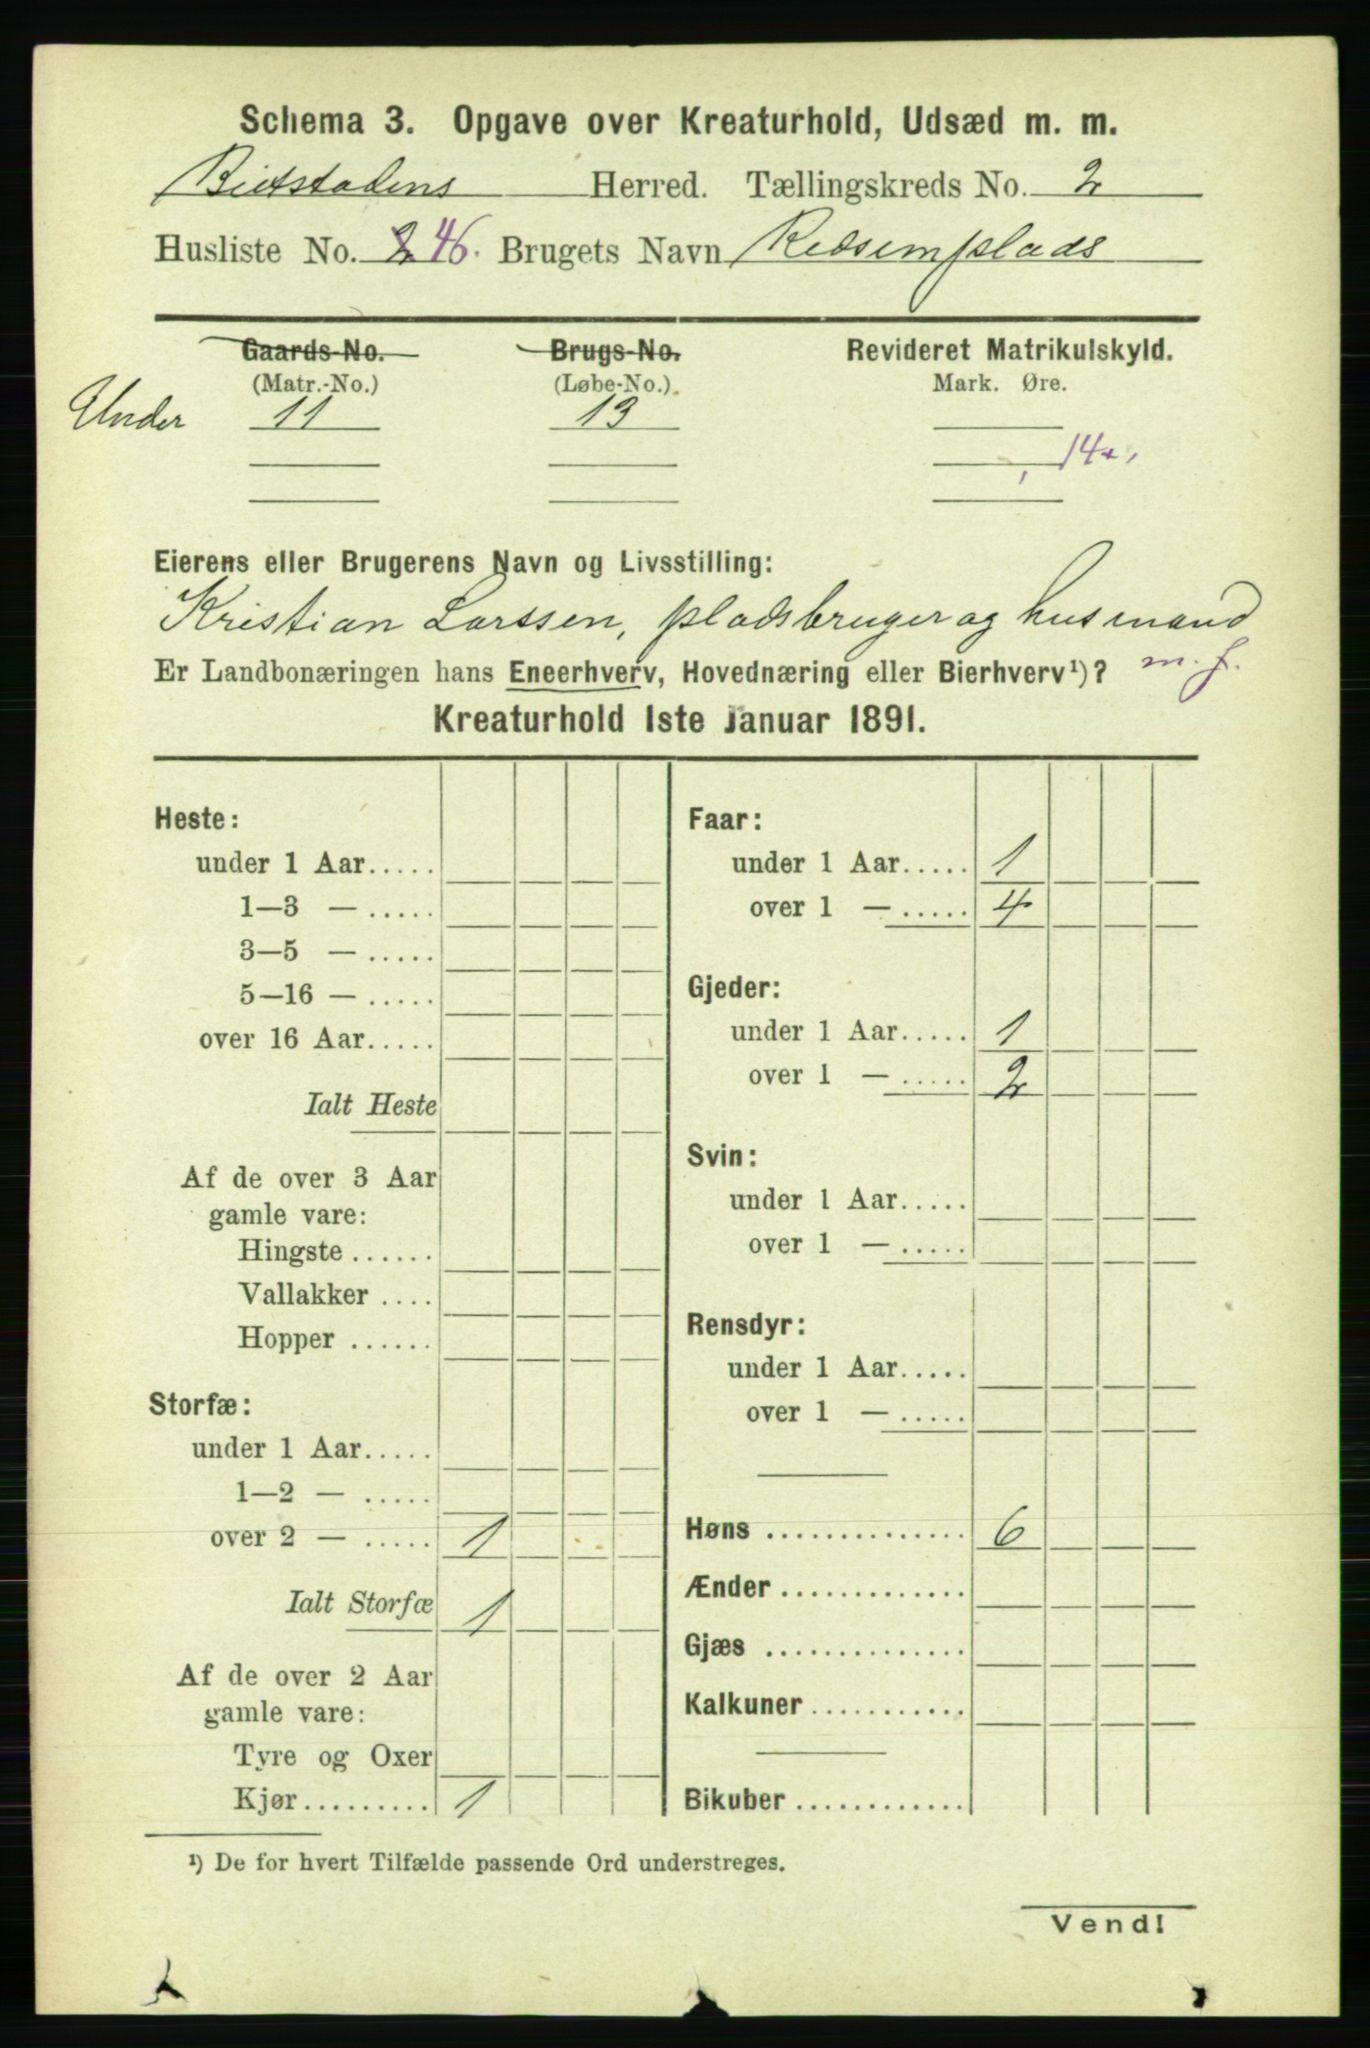 Schema 3. Opgave over Kreaturhold, Udsæd m. m.
Beitstadens Herred. Tællingskreds No. 2
Husliste No. 2 46. Brugets Navn Redsemplads
Gaards-No. Brugs-No. Revideret Matrikulskyld.
(Matr.-No.) (Løbe-No.). Mark. Øre.
Under 11 13
, 14
Eierens eller Brugerens Navn og Livsstilling:
Kristian Larssen, pladsbruger og husmand
Er Landbonæringen hans Eneerhverv, Hovednæring eller Bierhverv¹)? m. f.
Kreaturhold 1ste Januar 1891.
Heste:
under 1 Aar.....
1—3 — .....
3—5 — .....
5—16 — .....
over 16 Aar.....
Ialt Heste
Af de over 3 Aar
gamle vare:
Hingste ......
Vallakker ....
Hopper ......
Storfæ:
under 1 Aar.....
1—2 — .....
over 2 — ..... 1
Ialt Storfæ 1
Af de over 2 Aar
gamle vare:
Tyre og Oxer
Kjør......... 1
Faar:
under 1 Aar..... 1
over 1 — ..... 4
Gjeder:
under 1 Aar..... 1
over 1 — ..... 2
Svin:
under 1 Aar.....
over 1 — .....
Rensdyr:
under 1 Aar.....
over 1 — .....
Høns .............. 6
Ænder .............
Gjæs ..............
Kalkuner ...........
Bikuber .............
¹) De for hvert Tilfælde passende Ord understreges.
Vend!